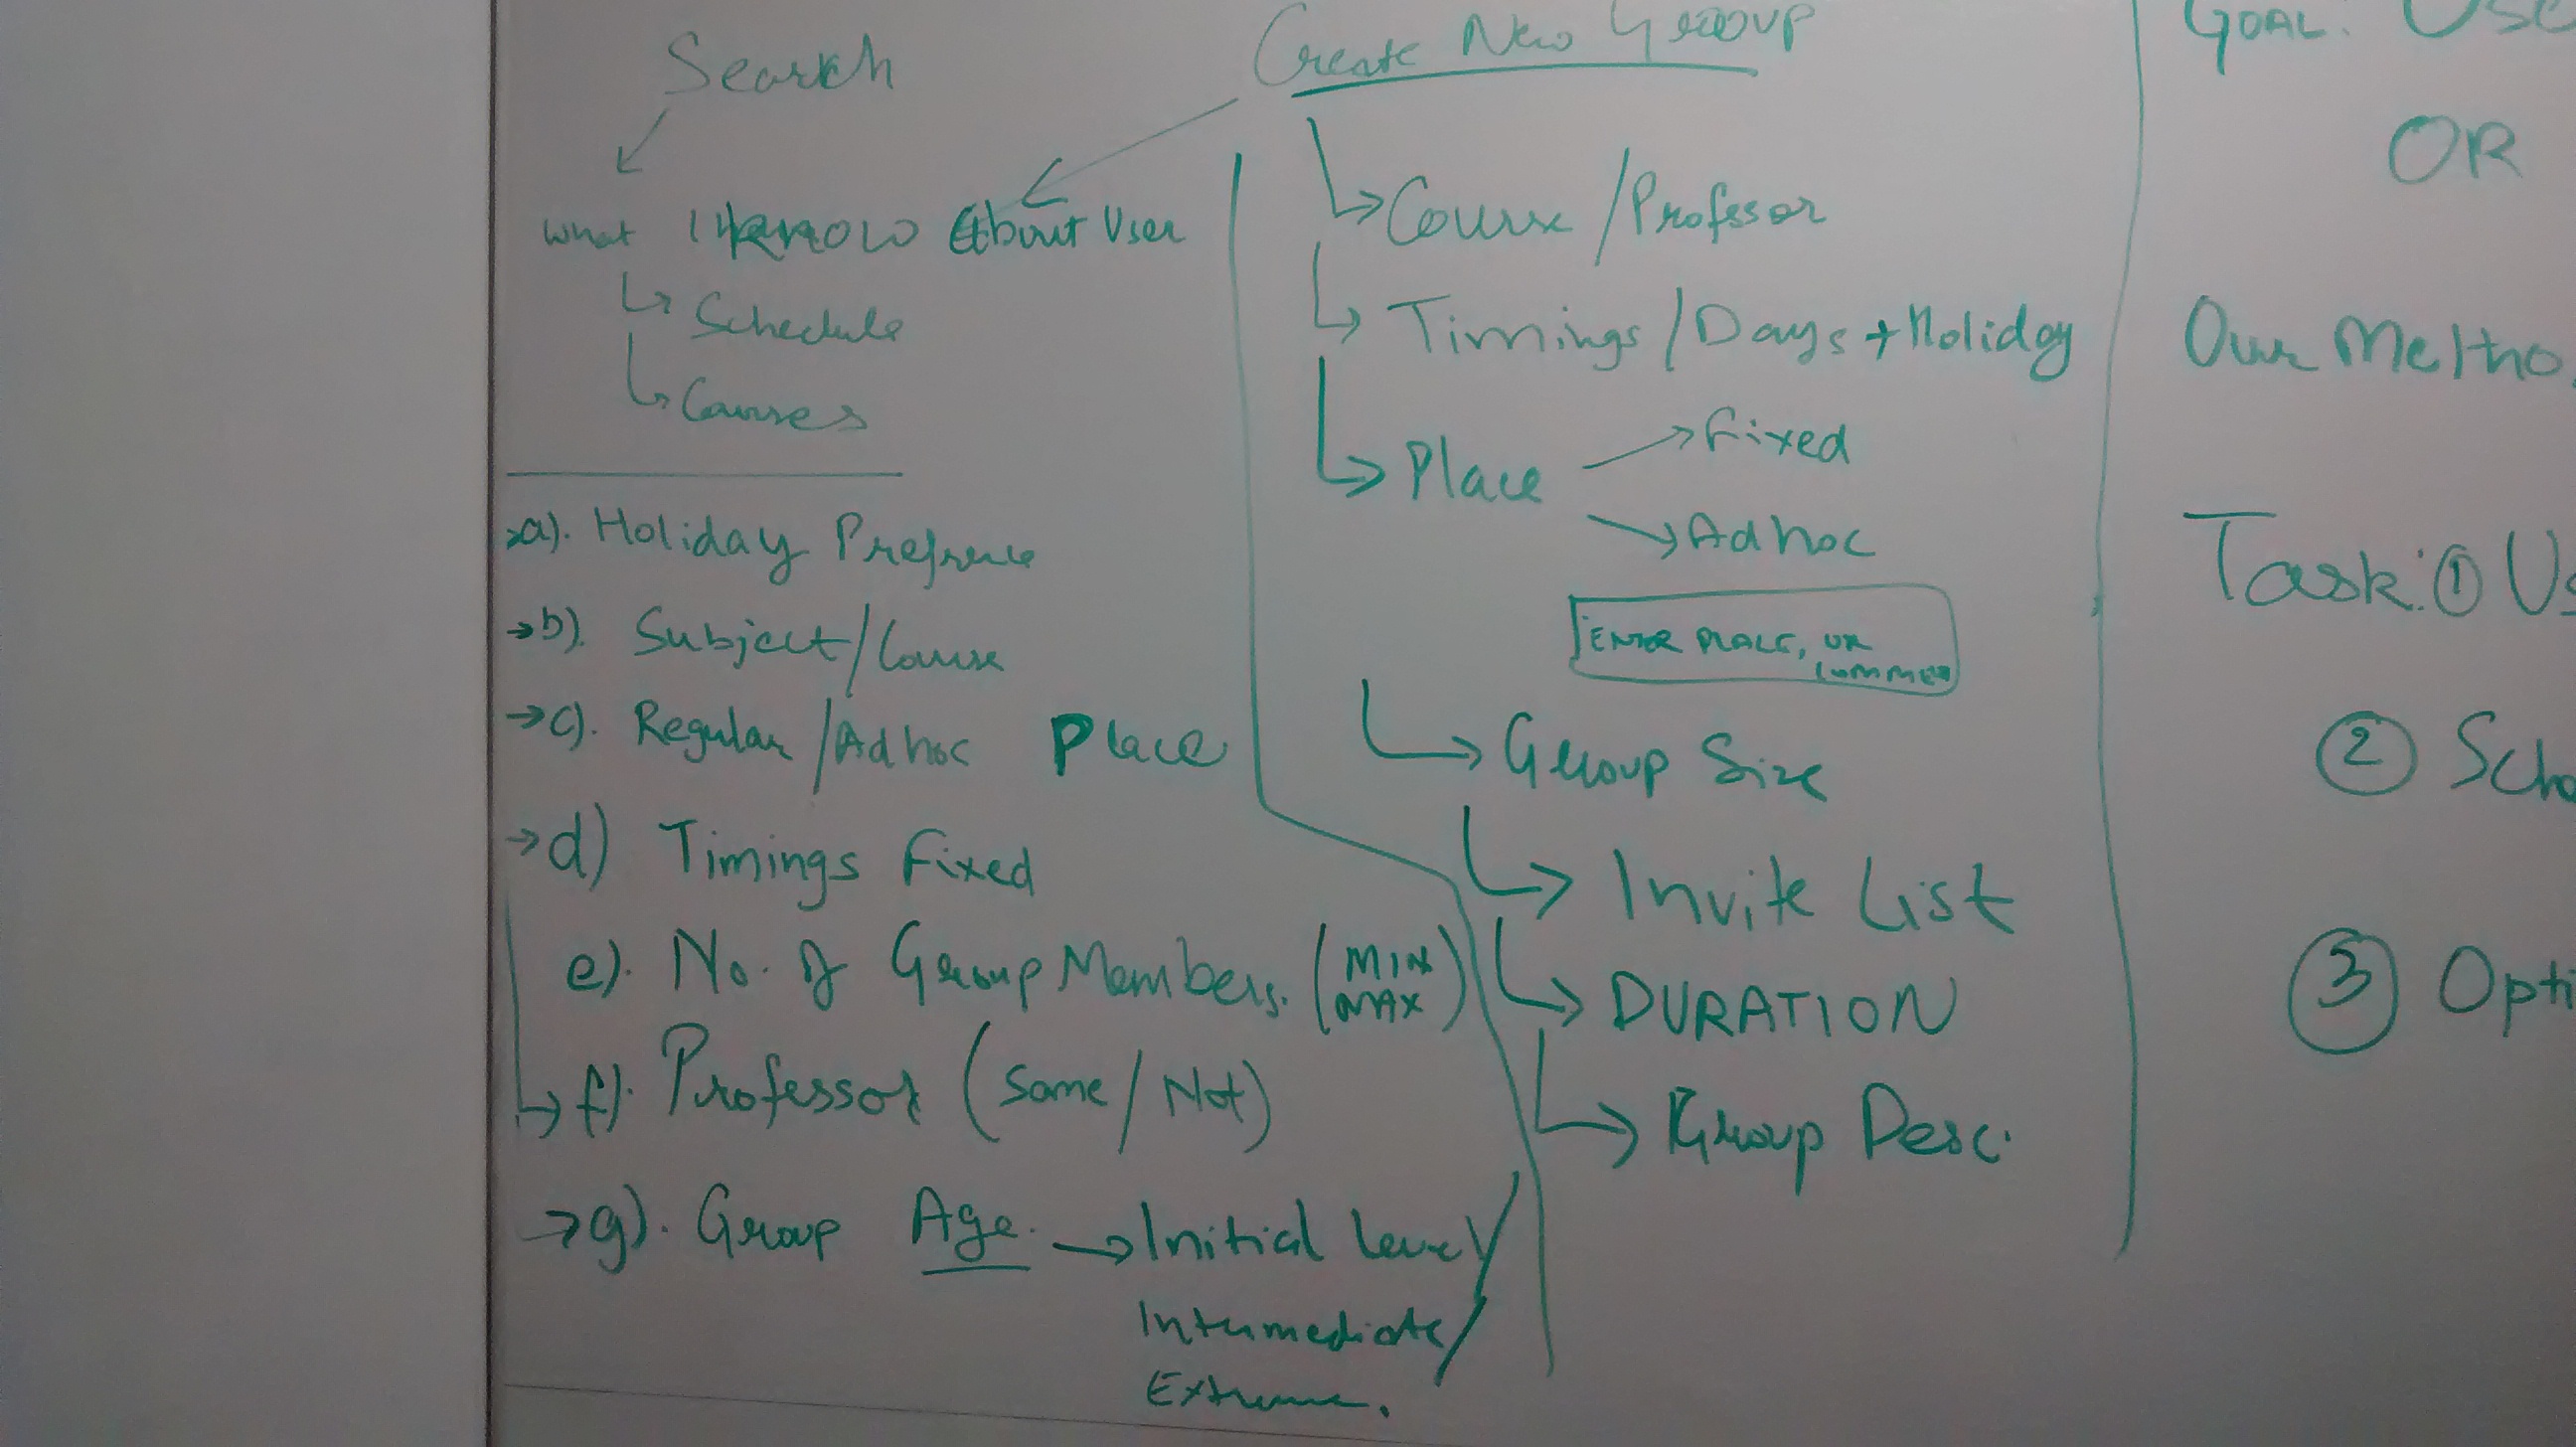 Search
What I Know About User
Schedule
Courses
a). Holiday Prefrence
b). Subject/Course
c). Regular/Adhoc Place
d) Timings Fixed
e). No. of Group Members. (MIN MAX)
f). Professor (Same/Not)
g). Group Age. → Initial level/
Intermediate/
Extreme.
Create New Group
Course/Professor
Timings/Days + Holiday
Place
Fixed
Adhoc
ENTER PLACE, OR
COMMENT
Group Size
Invite List
DURATION
Group Desc.
GOAL: Use
OR
Our Metho
Task: ① Us
② Sch
③ Opti